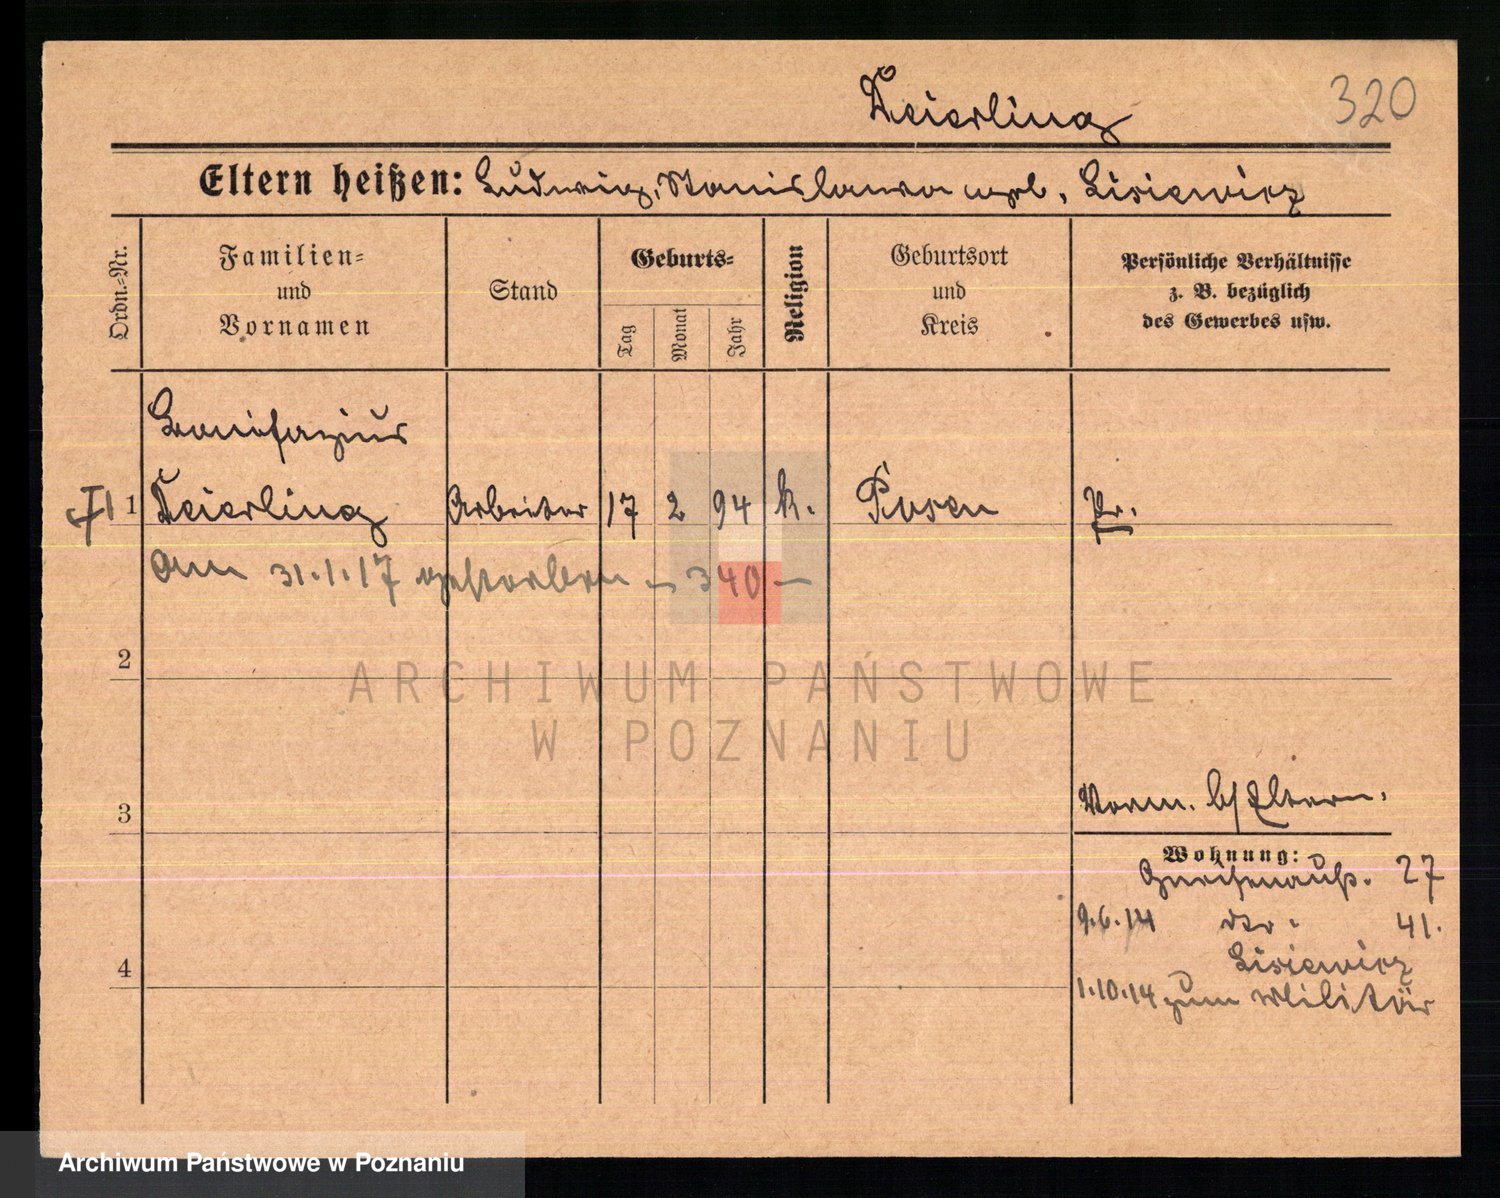 320
Eltern heißen: Ludwig, Stanislawa geb. Lisiewicz
Ordn.-Nr.
Familien-
und
Vornamen
Stand
Geburts-
Tag
Monat
Jahr
Religion
Geburtsort
und
Kreis
Persönliche Verhältnisse
z. B. bezüglich
des Gewerbes usw.
Bonifazius
1 Arbeiter 17 2 94 k. Posen Pr.
am 31.1.17 gestorben – 340 –
2
ARCHIWUM PAŃSTWOWE
W POZNANIU
3
Vorm. b/Eltern.
Wohnung:
27
9.6.14 dto. 41.
Lisiewicz
4
1.10.14 zum Militär
Archiwum Państwowe w Poznaniu